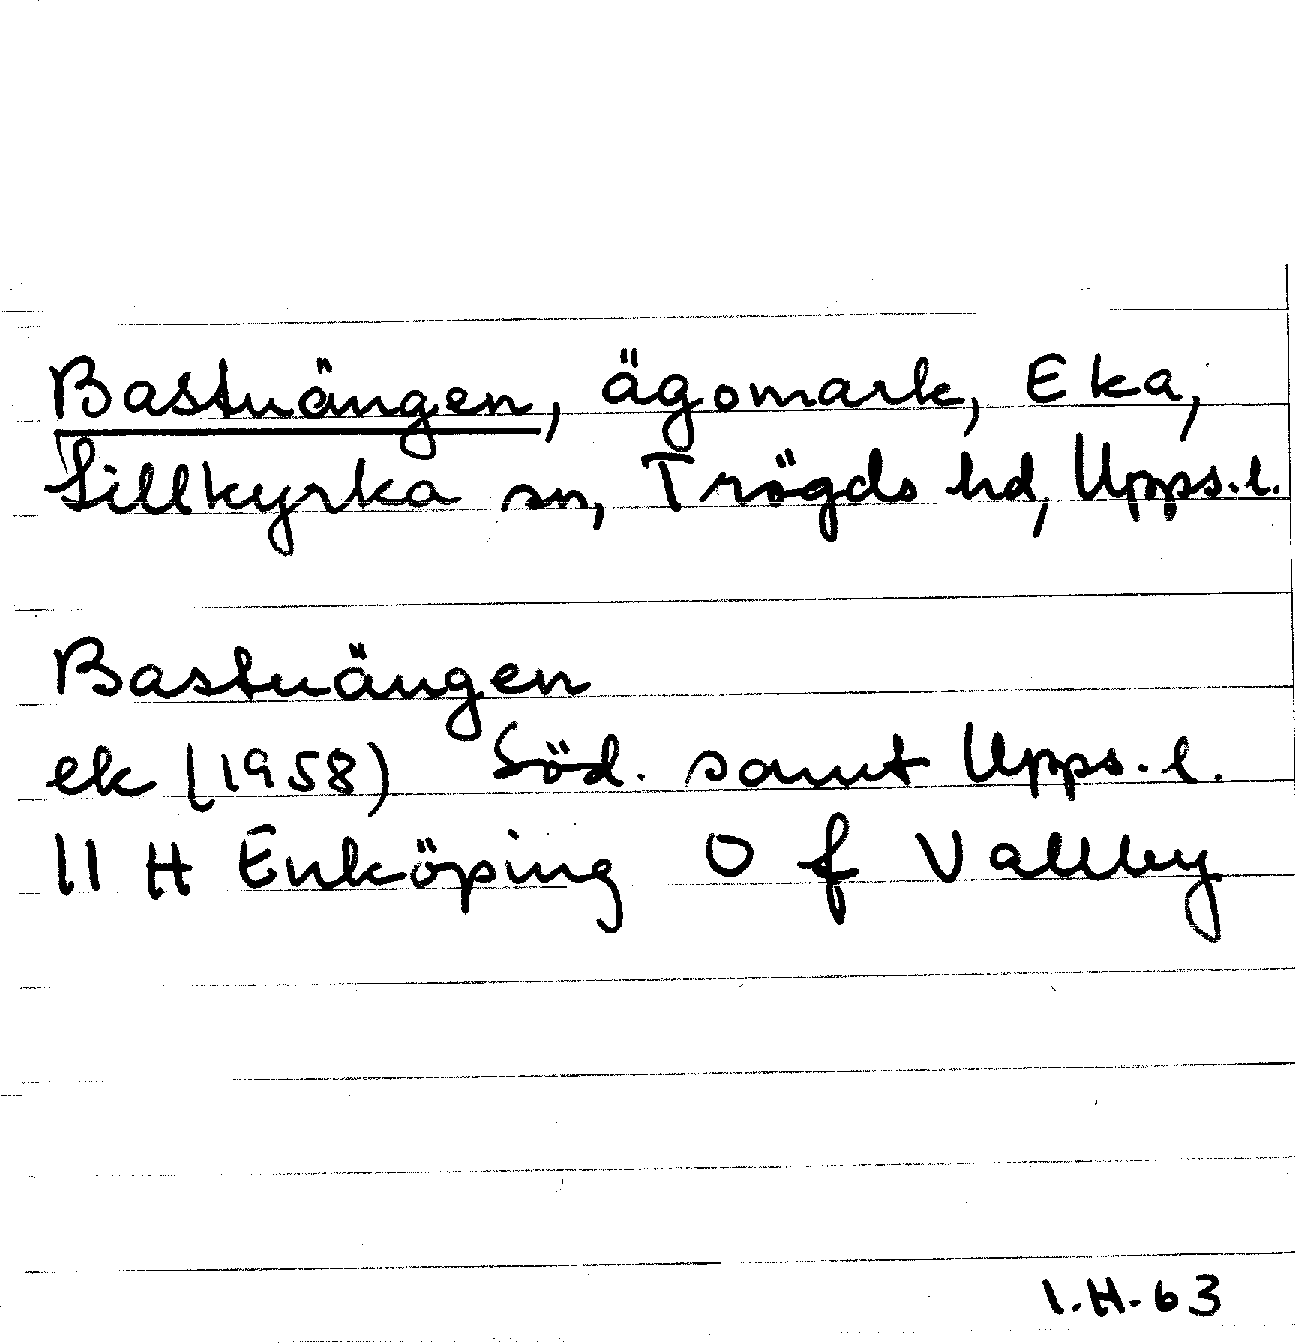 Bastuängen, ägomark, Eka,
Lillkyrka sn, Trögds hd, Upps.l.
Bastuängen
ek (1958) Söd. samt Upps.l.
11 H Enköping O f Vallby
I.H.63